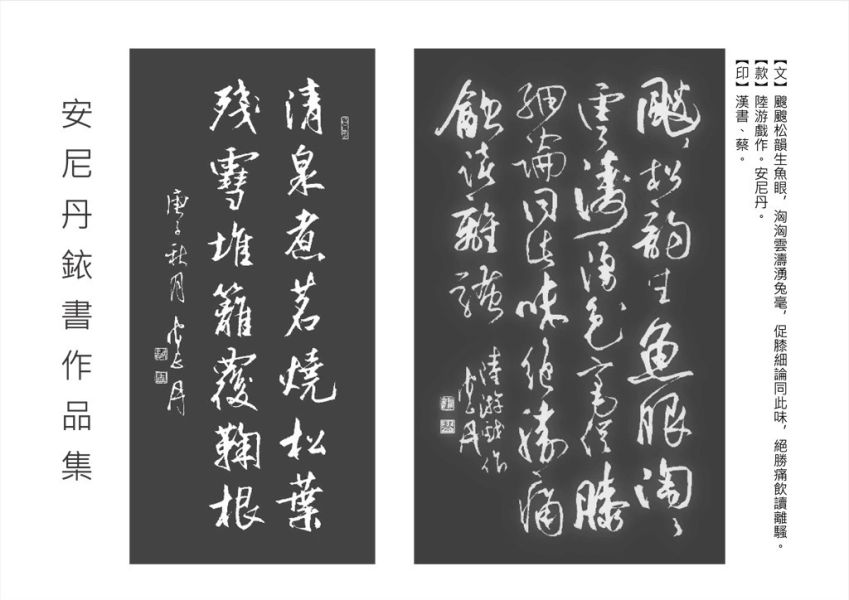 【文】颼颼松韻生魚眼，洶洶雲濤湧兔毫，促膝細論同此味，絕勝痛飲讀離騷。
【款】陸游戲作。安尼丹。
【印】漢書、蔡。
颼〻松韵生魚眼洶〻
雲濤湧兔毫促膝
細論同此味絕勝痛
飲讀離騷
陸游戲作
安尼丹
清泉煮茗燒松葉
残雪堆籬覆鞠根
庚子秋月 安尼丹
安尼丹銥書作品集